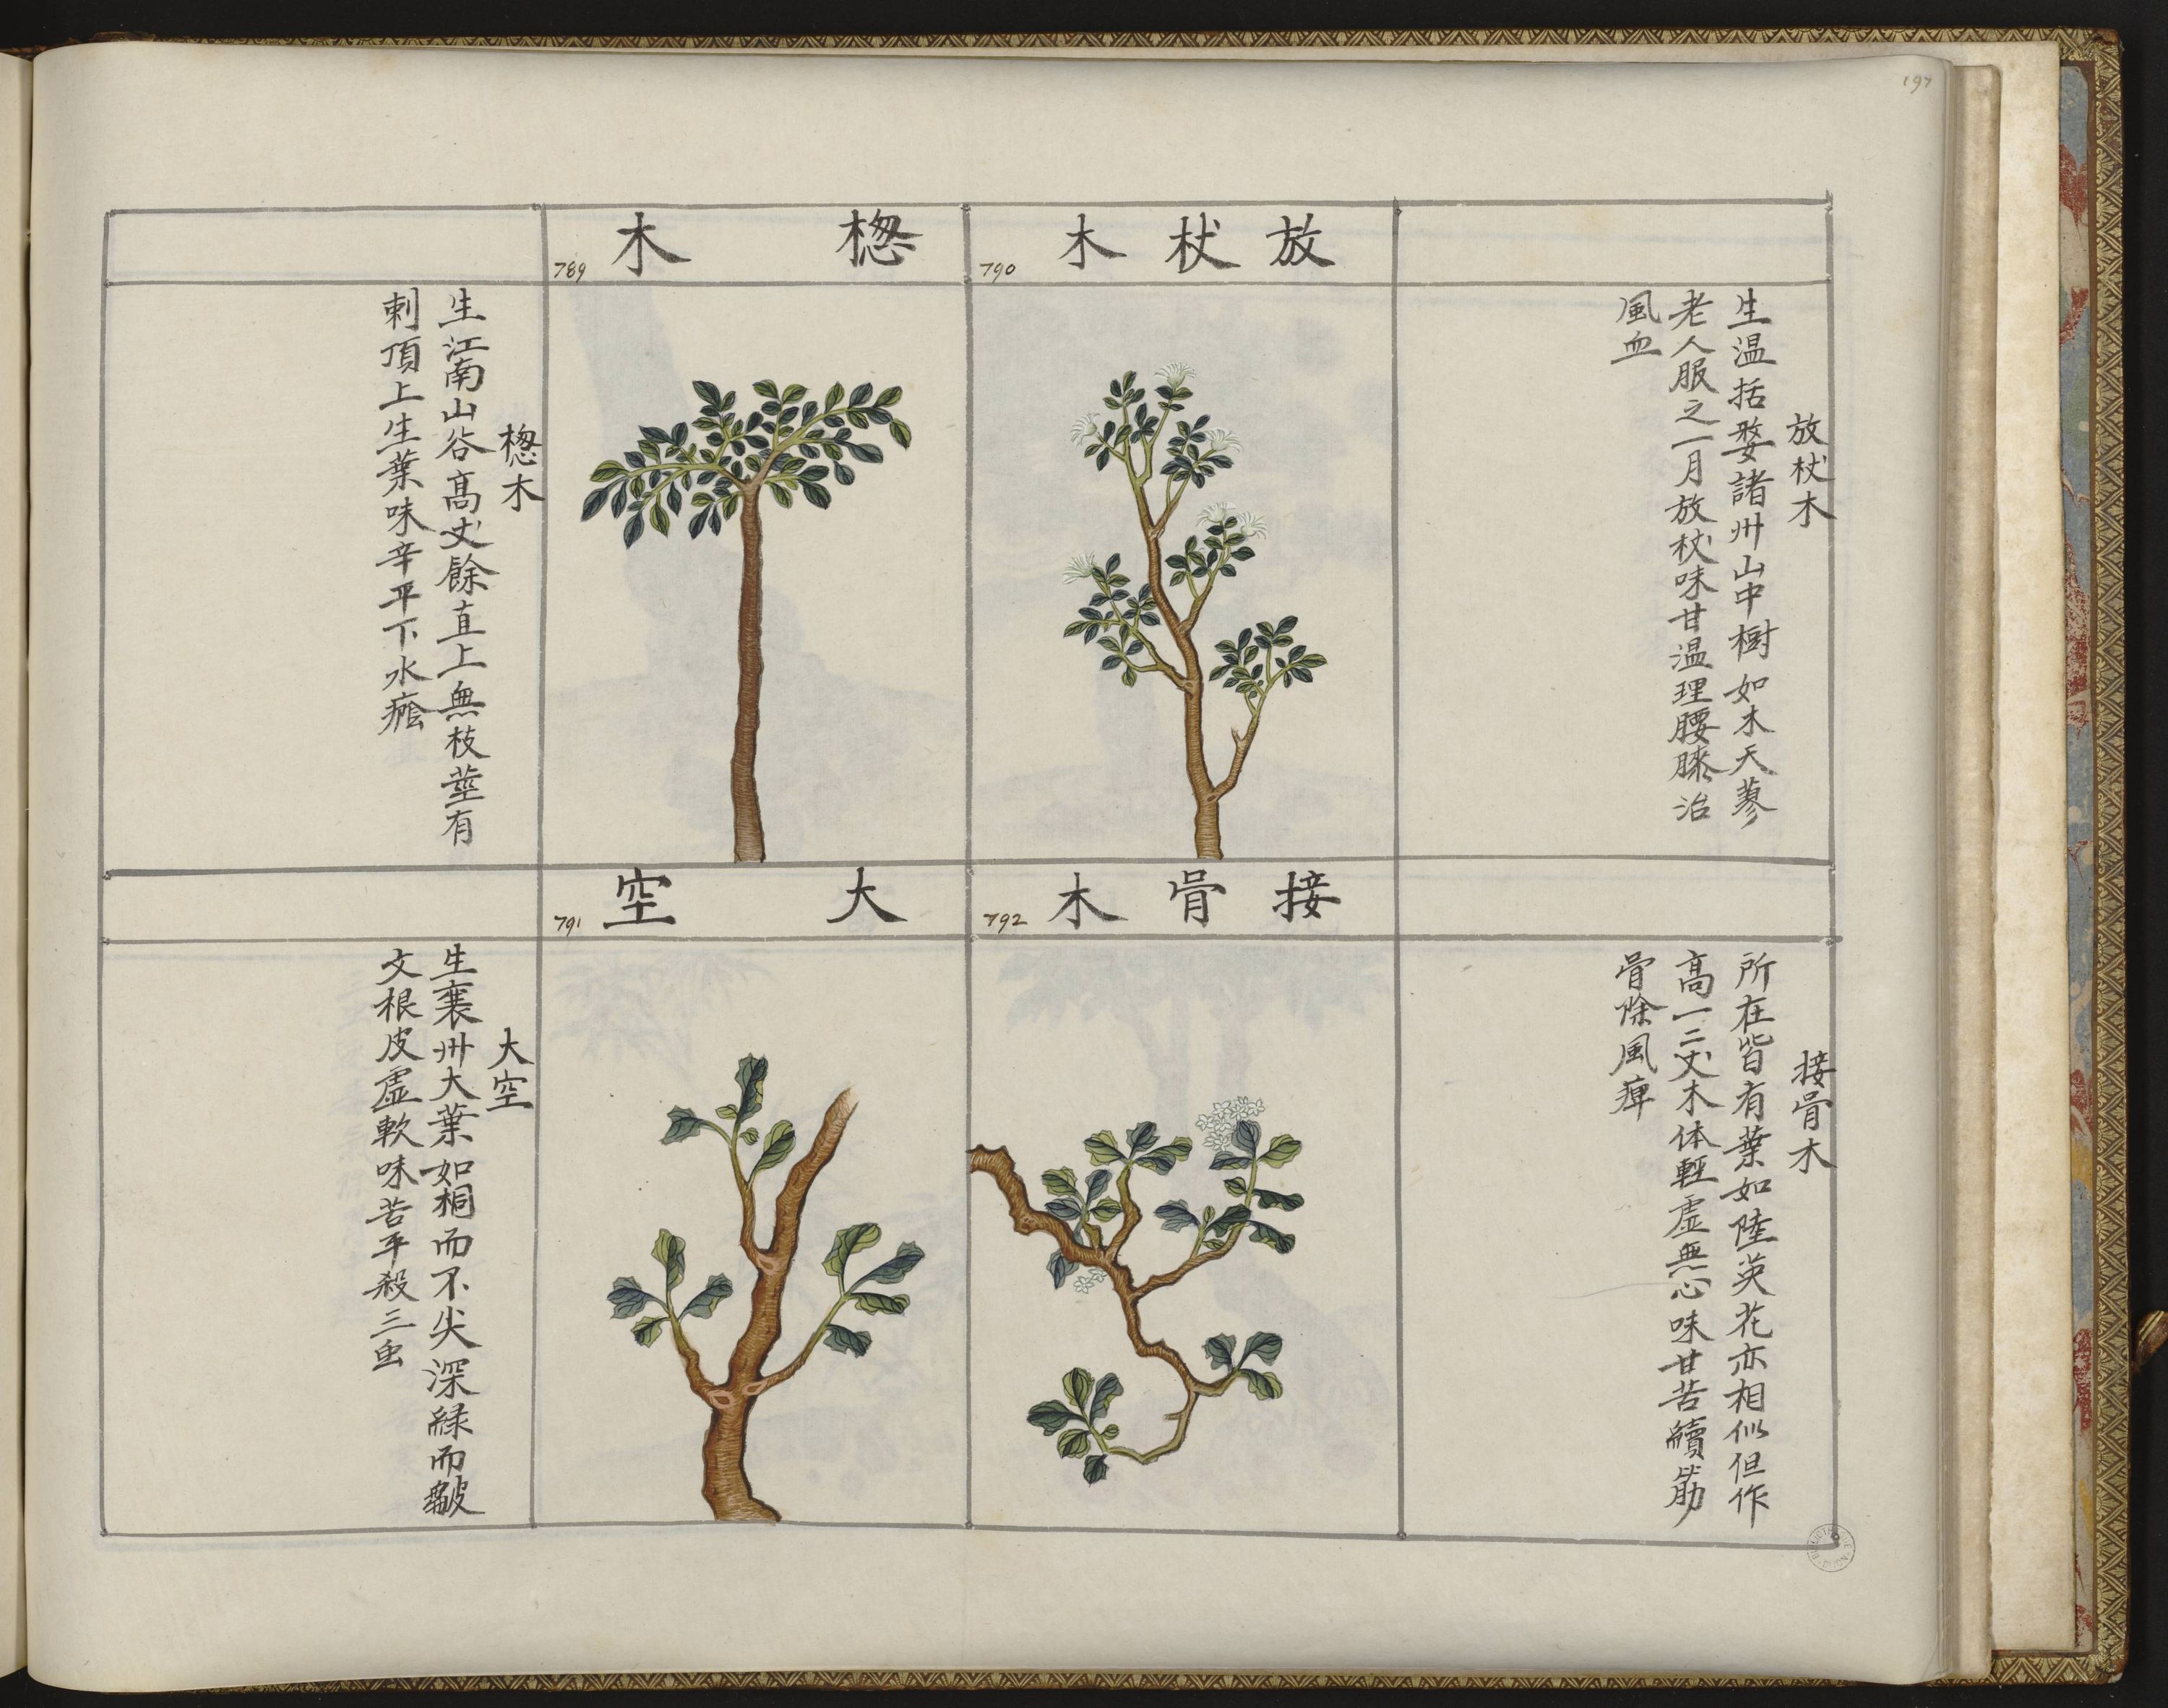 197
放杖木
790
楤木
789
放杖木
生温括婺諸州山中樹如木天蓼
老人服之一月放杖味甘温理腰膝治
風血
楤木
生江南山谷高丈餘直上無枝莖有
刺頂上生葉味辛平下水癊
接骨木
792
大空
791
接骨木
所在皆有葉如陸英花亦相似但作
高一二丈木体輕虛無心味甘苦續筋
骨除風痺
大空
生襄州大葉如桐而不尖深緑而皺
文根皮虛軟味苦平殺三虫